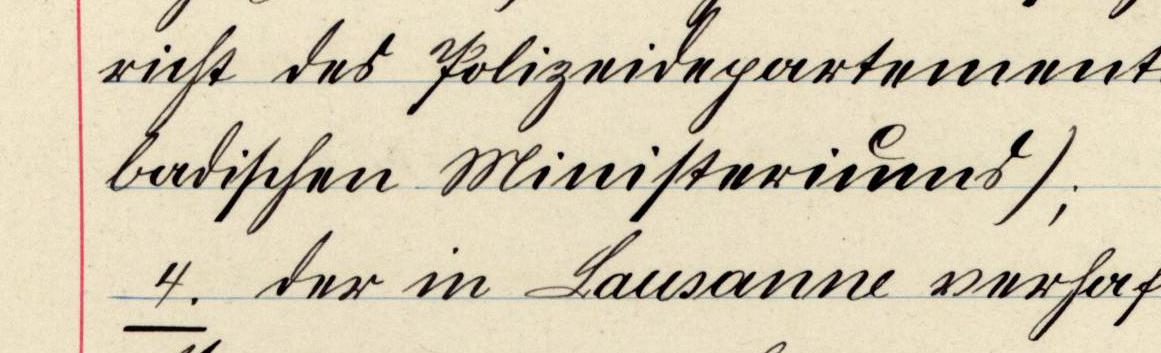 richt des Polizeidepartement
badischen Ministeriums);
4. der in Lausanne verhaf